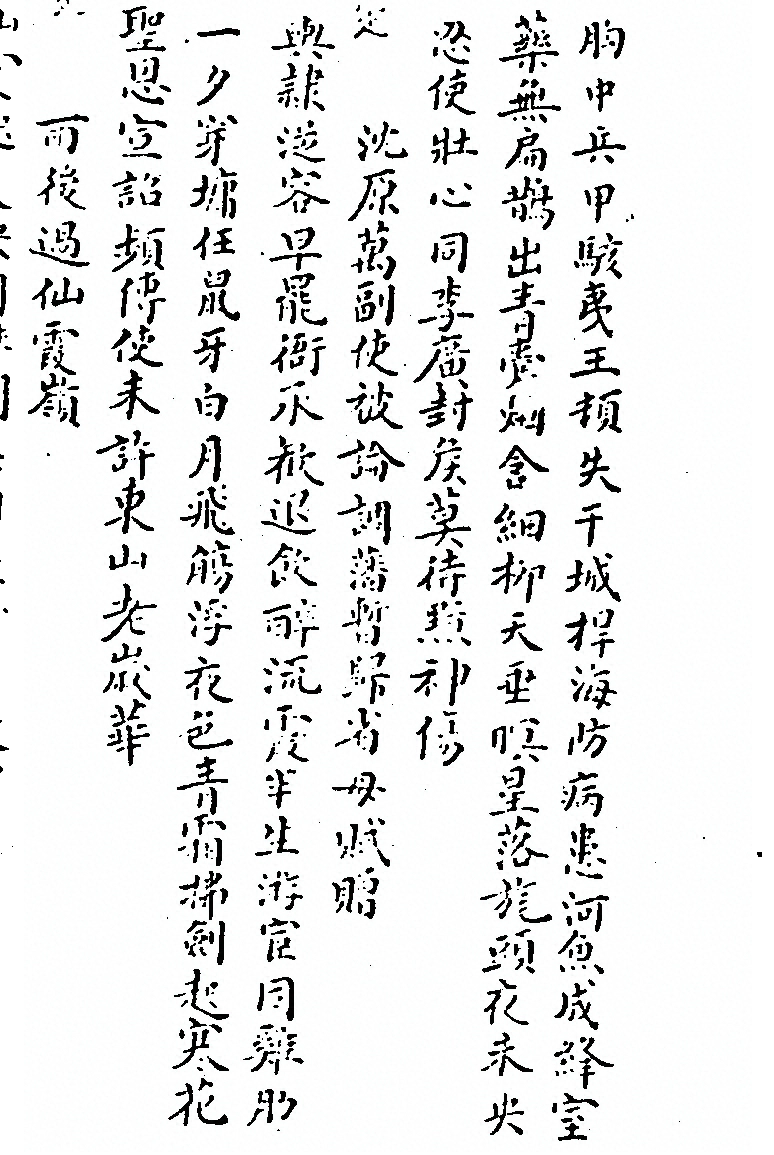 胸中兵甲駭夷王頓失干城捍海防病患河魚成絳室
藥無扁鵲出青囊烟含細柳天垂暝星落旄頭夜未央
忍使壯心同李廣封侯莫待黯神傷
沈原萬副使被論調藩暫歸省母賦贈
輿隸從容早罷衙承歡退飲醉流霞半生游宦同雞肋
一夕穿墉任鼠牙白月飛觴浮夜色青霜拂劍起寒花
聖恩宣詔頻傳使未許東山老歲華
雨後過仙霞嶺